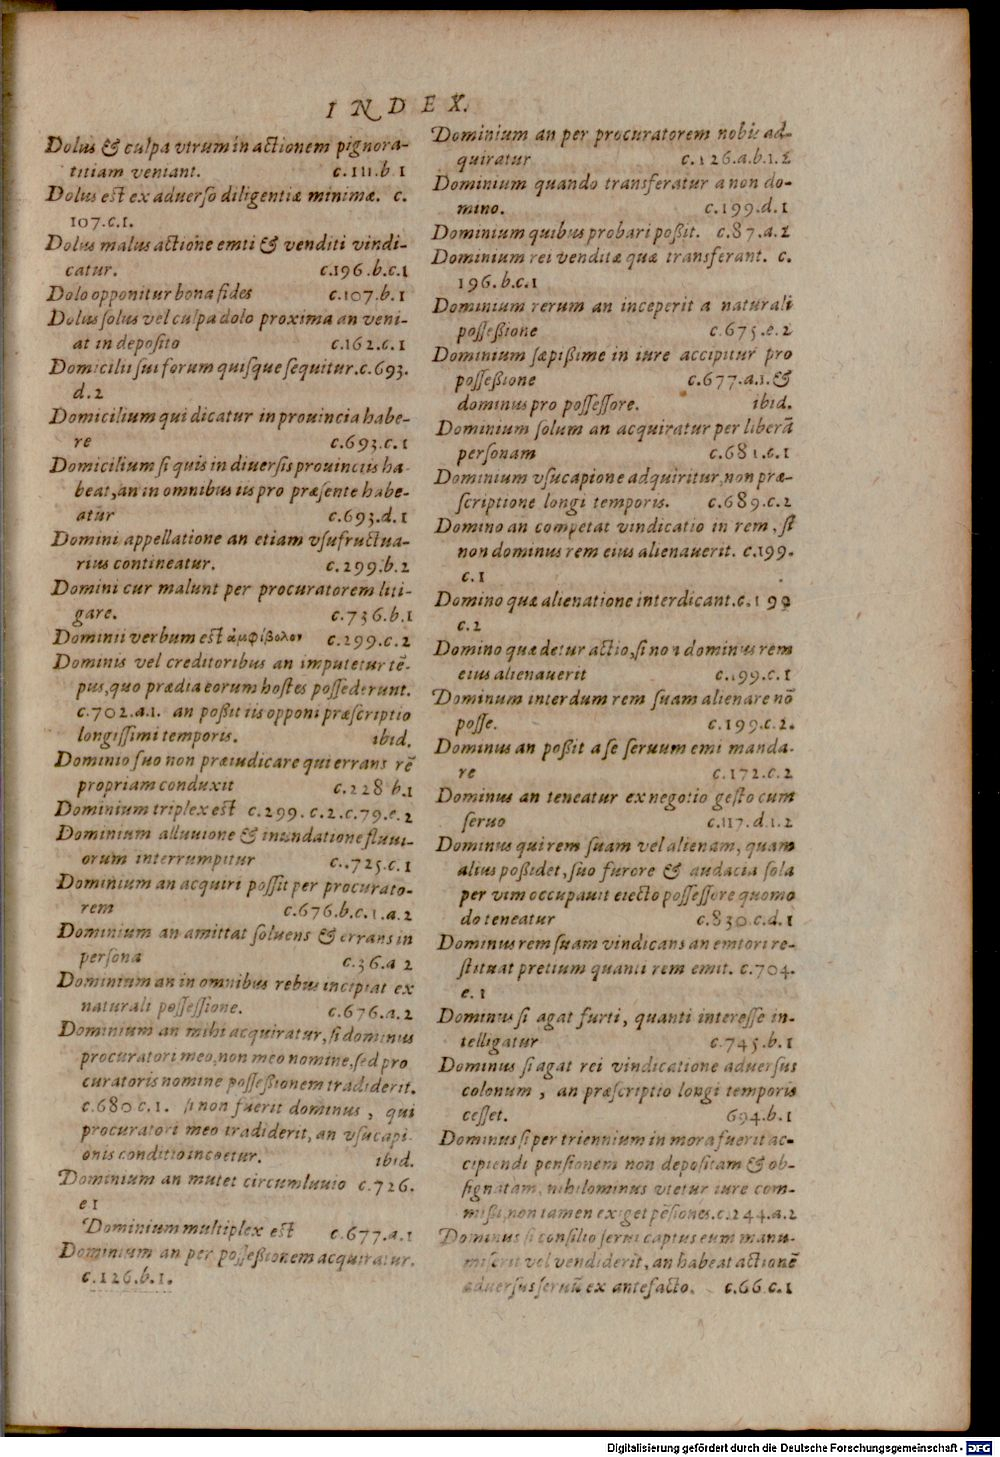 INDEX.
Dolus & culpa vtrum in actionem pignora-
titiam veniant. c.111.b 1
Dolus est ex aduerso diligentiæ minimæ. c.
107.c.1.
Dolus malus actione emti & venditi vindi-
catur. c.196.b.c.1
Dolo opponitur bona fides c.107.b.1
Dolus solus vel culpa dolo proxima an veni-
at in deposito c.162.c.1
Domicilii sui forum quisque sequitur.c.693.
d.2
Domicilium qui dicatur in prouincia habe-
re c.693.c.1
Domicilium si quis in diuersis prouinciis ha-
beat,an in omnibus iis pro præsente habe-
atur c.693.d.1
Domini appellatione an etiam vsufructua-
rius contineatur. c.299.b.2
Domini cur malunt per procuratorem liti-
gare. c.736.b.1
Dominii verbum est ἀμφίβολον c.299.c.2
Dominis vel creditoribus an imputetur tē-
pus,quo prædia eorum hostes possederunt.
c.702.a.1. an poßit iis opponi præscriptio
longissimi temporis. ibid.
Dominio suo non præiudicare qui errans rē
propriam conduxit c.228 b.1
Dominium triplex est c.299.c.2.c.79.e.2
Dominium alluuione & inundatione fluui-
orum interrumpitur c..725.c.1
Dominium an acquiri possit per procurato-
rem c.676.b.c.1.a.2
Dominium an amittat soluens & errans in
persona c.36.a 2
Dominium an in omnibus rebus incipiat ex
naturali possessione. c.676.a.2
Dominium an mihi acquiratur,si dominus
procuratori meo,non meo nomine,sed pro
curatoris nomine posseßionem tradiderit.
c.680 c.1. si non fuerit dominus, qui
procuratori meo tradiderit,an vsucapi-
onis conditio incoetur. ibid.
Dominium an mutet circumluuio c.726.
e 1
Dominium multiplex est c.677.a.1
Dominium an per posseßionem acquiratur.
c.126.b.1.
Dominium an per procuratorem nobis ad-
quiratur c.126.a.b.1.2
Dominium quando transferatur a non do-
mino. c.199.d.1
Dominium quibus probari poßit. c.87.a.2
Dominium rei venditæ quæ transferant. c.
196.b.c.1
Dominium rerum an inceperit a naturali
posseßione c.675.e.2
Dominium sæpißime in iure accipitur pro
posseßione c.677.a.1.&
dominus pro possessore. ibid.
Dominium solum an acquiratur per liberā
personam c.681.e.1
Dominium vsucapione adquiritur,non præ-
scriptione longi temporis. c.689.c.2
Domino an competat vindicatio in rem, si
non dominus rem eius alienauerit. c.199.
c.1
Domino quæ alienatione interdicant.c.199
c.2
Domino quæ detur actio,si non dominus rem
eius alienauerit c.199.c.1
Dominum interdum rem suam alienare nō
posse. c.199.c.2.
Dominus an poßit a se seruum emi manda-
re c.172.c.2
Dominus an teneatur ex negotio gesto cum
seruo c.117.d.1.2
Dominus qui rem suam vel alienam, quam
alius poßidet,suo furore & audacia sola
per vim occupauit eiecto possessore quomo
do teneatur c.830.c.d.1
Dominus rem suam vindicans an emtori re-
stituat pretium quanti rem emit. c.704.
e.1
Dominus si agat furti, quanti interesse in-
telligatur c.745.b.1
Dominus si agat rei vindicatione aduersus
colonum, an præscriptio longi temporis
cesset. 694.b.1
Dominus si per triennium in mora fuerit ac-
cipiendi pensionem non depositam & ob-
signatam, nihilominus vtetur iure com-
mißi,non tamen exiget pēsiones.c.244.a.2
Dominus si consilio serui captus eum manu-
miserit vel vendiderit, an habeat actionē
aduersus seruū ex antefacto. c.66.c.1
Digitalisierung gefördert durch die Deutsche Forschungsgemeinschaft - DFG